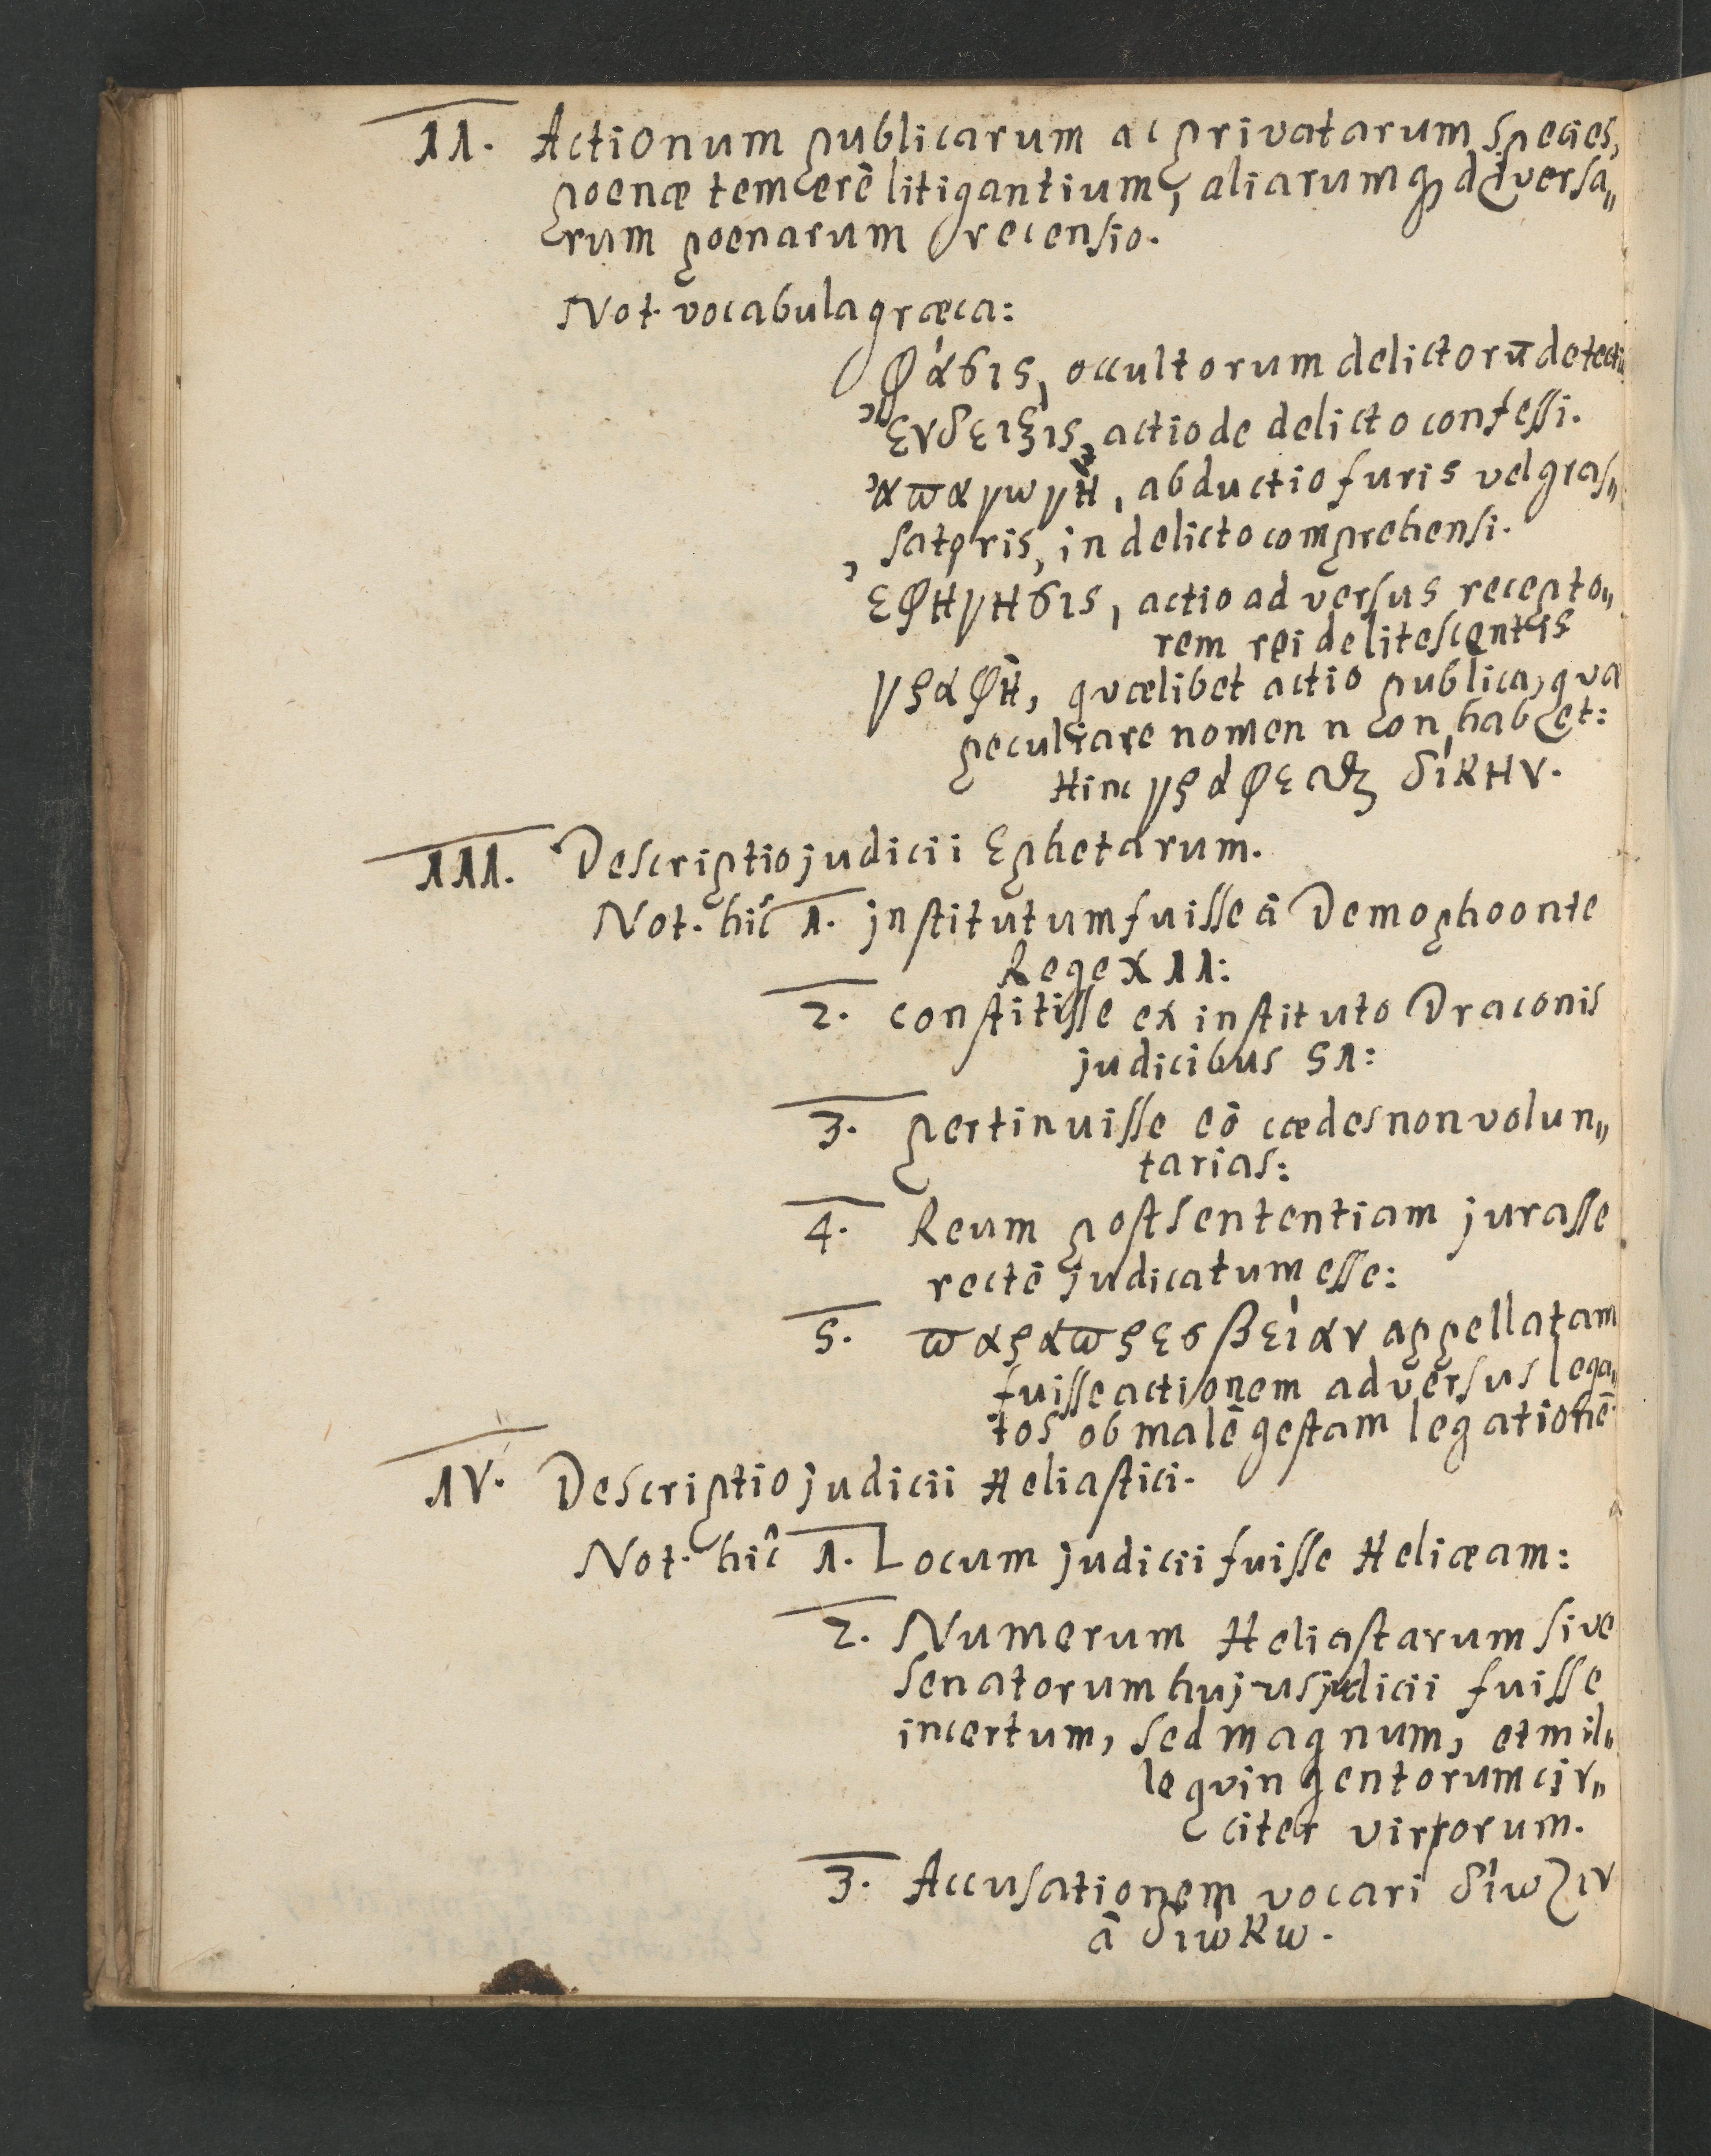 II. Actionum publicarum ac privatarum species,
poenæ temerè litigantium, aliarumq́; diversa„
rum poenarum recensio.
Not. vocabula græca:
φάσις, occultorum delictorū detectio
ἔνδειξις, actio de delicto confessi.
ἀπαγωγὴ, abductio furis vel gras„
satoris, in delicto comprehensi.
ἐφήγησις, actio adversus recepto„
rem rei delitescentis
γραφὴ, qvælibet actio publica, qvæ
peculiare nomen non habet:
Hinc γράφεσθαι δίκην.
III. Descriptio judicii Ephetarum.
Not. hîc 1. institutum fuisse à Demophoonte
Rege XII:
2. constitisse ex instituto Draconis
judicibus 51:
3. pertinuisse eò cædes non volun„
tarias:
4. Reum post sententiam jurasse
rectè judicatum esse:
5. παραπρεσβείαν appellatam
fuisse actionem adversus lega„
tos ob malè gestam legationē
IV. Descriptio judicii Heliastici.
Not. hîc 1. Locum judicii fuisse Heliæam:
2. Numerum Heliastarum sive
senatorum hujus judicii fuisse
incertum, sed magnum, et mil„
le qvingentorum cir„
citer virorum.
3. Accusationem vocari δίωξιν
à διώκω.